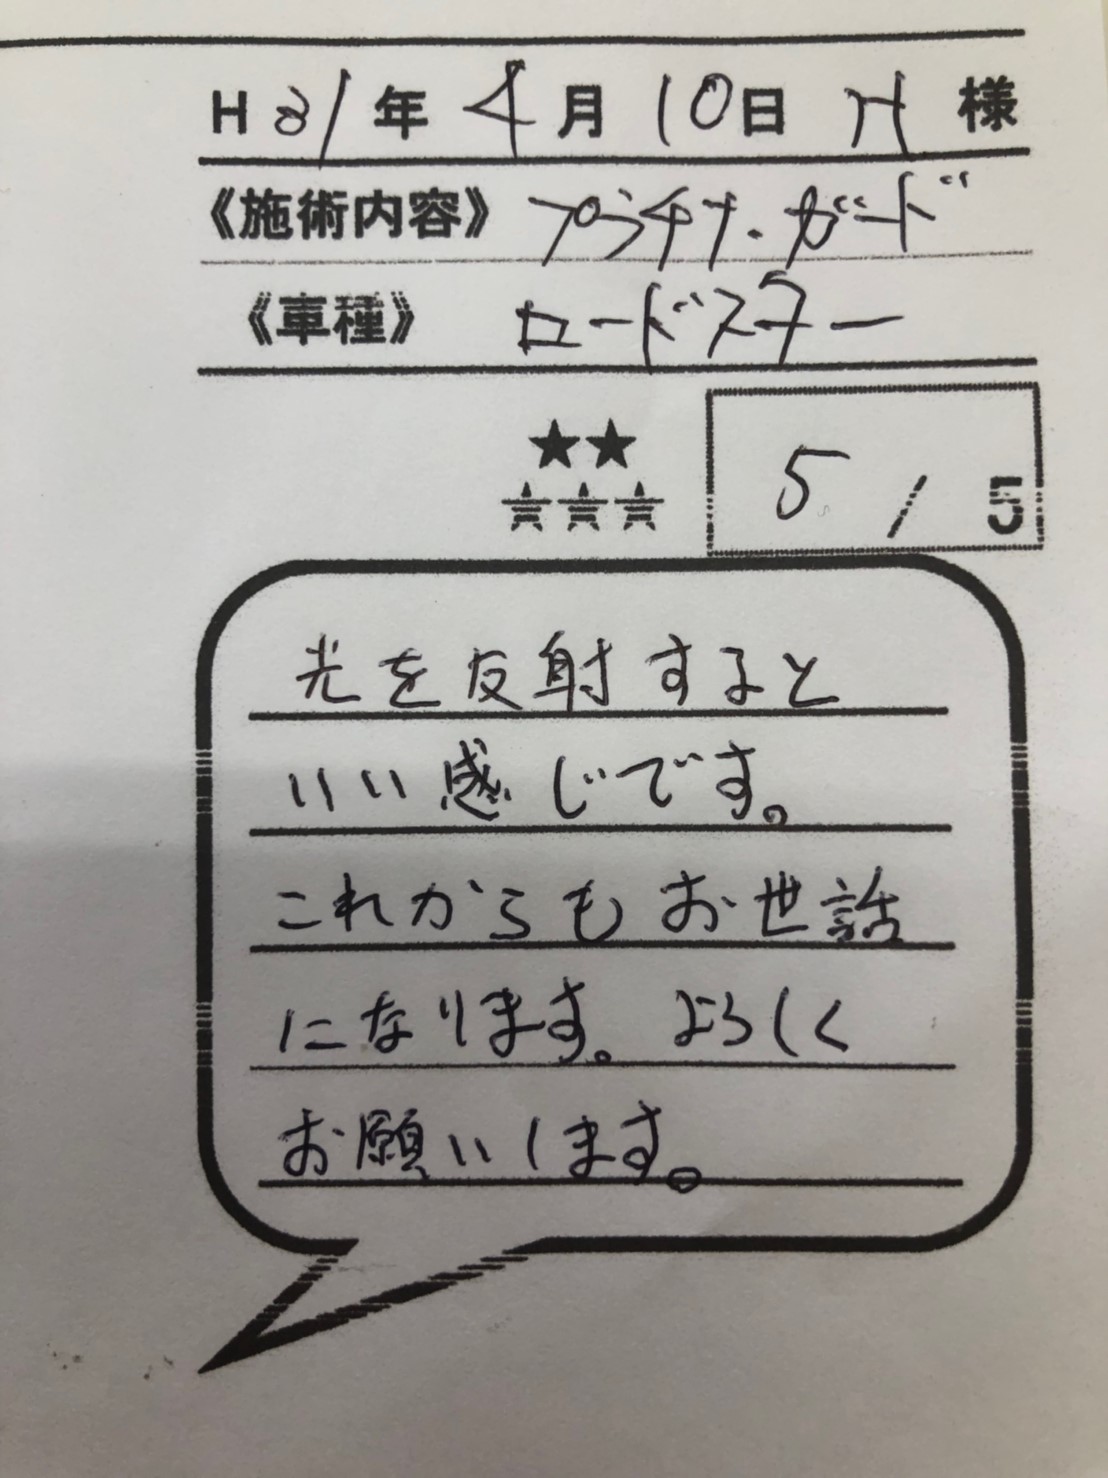 H31年 4月 10日 H 様
《施術内容》 プラチナ・ガード
《車種》 ロードスター
★★
★★★
5 / 5
光を反射すると
いい感じです。
これからもお世話
になります。よろしく
お願いします。